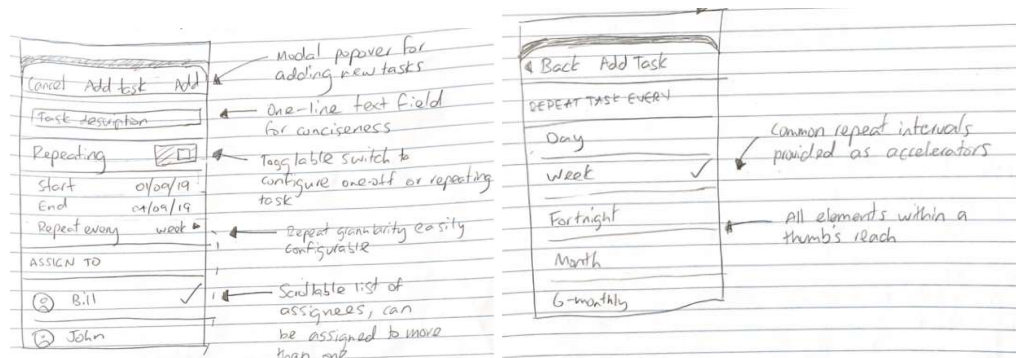 Cancel Add task Add
Task description
Repeating
Start 01/09/19
End 01/09/19
Repeat every week
ASSIGN TO
Bill
John
Modal popover for
adding new tasks
One-line text field
for conciseness
Togglable switch to
configure one-off or repeating
task
Repeat granularity easily
configurable
Scrollable list of
assignees, can
be assigned to more
than one
Back Add Task
REPEAT TASK EVERY
Day
Week
Fortnight
Month
6-monthly
Common repeat intervals
provided as accelerators
All elements within a
thumb's reach